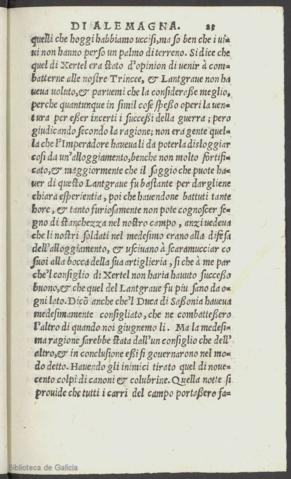 DI ALEMAGNA. 23
quelli che hoggi habbiamo uccisi, ma so ben che i ui-
ui non hanno perso un palmo di terreno. Si dice che
quel di Xertel era stato d'opinion di uenir à com-
batterne alle nostre Trincee, & Lantgraue non ha
ueua uoluto, & paruemi che la considerasse meglio,
perche quantunque in simil cose spesso operi la uen-
tura per esser incerti i successi della guerra; pero
giudicando secondo la ragione; non era gente quel-
la che l'Imperadore haueua li da poterla disloggiar
cosi da un'alloggiamento, benche non molto fortifi-
cato, & maggiormente che il saggio che puote ha-
uer di questo Lantgraue fu bastante per dargliene
chiara esperientia, poi che hauendone battuti tante
hore, & tanto furiosamente non pote cognoscer se-
gno di stanchezza nel nostro campo, anzi uedeua
che li nostri soldati nel medesimo erano alla difesa
dell'alloggiamento, & usciuano à scaramucciar co
suoi alla bocca della sua artiglieria, si che à me par
che'l consiglio di Xertel non haria hauuto successo
buono, & che quel del Lantgraue fu piu sano da o-
gni lato. Dicõ anche che'l Duca di Sassonia haueua
medesimamente consigliato, che ne combattessero
l'altro di quando noi giugnemo li. Ma la medesi-
ma ragione sarebbe stata dall'un consiglio che dell'
altro, & in conclusione essi si gouernarono nel mo-
do detto. Hauendo gli inimici tirato quel di noue-
cento colpi di canoni & colubrine. Quella notte si
prouide che tutti i carri del campo portassero fa-
Biblioteca de Galicia